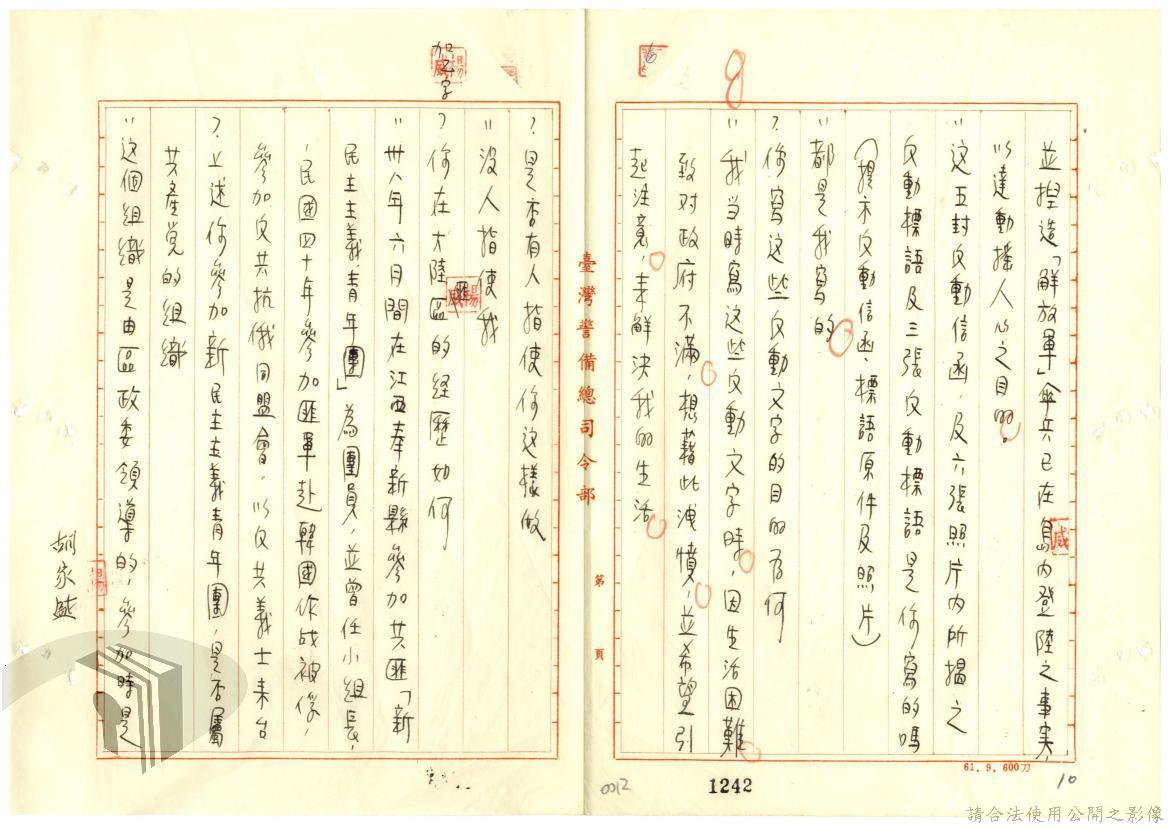 並捏造「鮮放軍」傘兵已在島內登陸之事実，
以達動搖人心之目的。
〃這五封反動信函，及六張照片內所揭之
反動標語及三張反動標語是你寫的嗎
（提示反動信函、標語原件及照片）
〃都是我寫的
？你寫這些反動文字的目的為何
〃我当時寫這些反動文字時，因生活困難
致对政府不滿，想藉此洩憤，並希望引
起注意，来解決我的生活
？是否有人指使你這樣做
〃沒人指使我
？你在大陸匪區的経歷如何
〃卅八年六月間在江西奉新縣參加共匪「新
民主主義青年團」為團員，並曾任小組長，
民國四十年參加匪軍赴韓國作战被俘，
參加反共抗俄同盟會，以反共義士来台
？上述你參加新民主主義青年團，是否屬
共產党的組織
〃這個組織是由區政委領導的，參加時是
加乙字
臺灣警備總司令部
第 頁
61.9.600刀
10
1242
0012
6
8
楊
威
請合法使用公開之影像